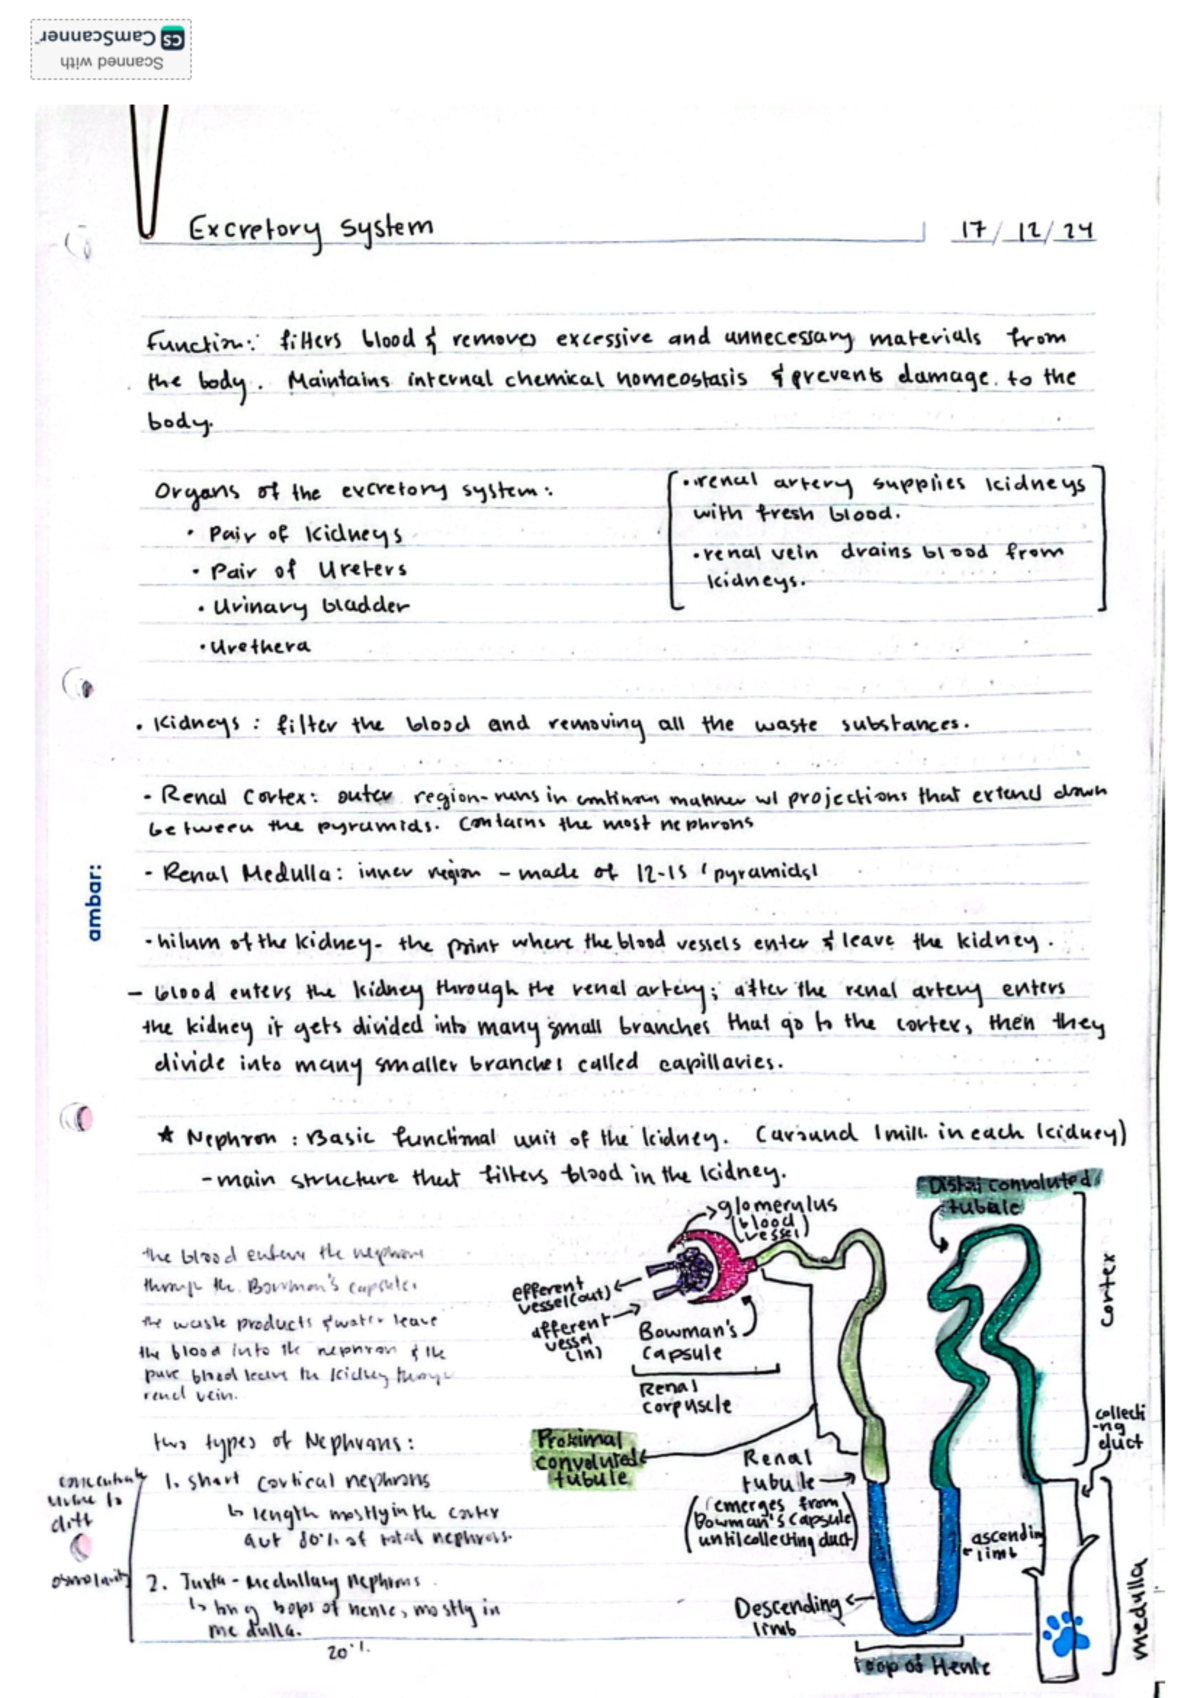 Scanned with
CS CamScanner
Excretory System
17/12/24
Function: filters blood & removes excessive and unnecessary materials from
the body. Maintains internal chemical homeostasis & prevents damage to the
body.
Organs of the excretory system:
• Pair of Kidneys
• Pair of Ureters
• Urinary bladder
• Urethera
• renal artery supplies kidneys
with fresh blood.
• renal vein drains blood from
kidneys.
• Kidneys: filter the blood and removing all the waste substances.
- Renal Cortex: outer region-runs in continous manner w/ projections that extend down
between the pyramids. Contains the most nephrons
- Renal Medulla: inner region - made of 12-15 'pyramids'
- hilum of the kidney- the point where the blood vessels enter & leave the kidney.
- blood enters the kidney through the renal artery; after the renal artery enters
the kidney it gets divided into many small branches that go to the cortex, then they
divide into many smaller branches called capillaries.
ambar:
★ Nephron: Basic functional unit of the kidney. (around 1mill. in each kidney)
- main structure that filters blood in the kidney.
the blood enters the nephron
through the Bowman's capsule.
the waste products & water leave
the blood into the nephron & the
pure blood leave the kidney through
renal vein.
two types of Nephrons:
1. short cortical nephrons
↳ length mostly in the cortex
80% of total nephrons.
2. Juxta-Medullary nephrons
↳ long loops of henle, mostly in
medulla.
20%
concentrate
urine to
diff
osmolarity
glomerulus
(blood
vessel)
efferent
vessel(out)
afferent
vessel
(in)
Bowman's
capsule
Renal
corpuscle
Proximal
convoluted
tubule
Renal
tubule
(emerges from
Bowman's capsule
until collecting duct)
Descending
limb
Loop of Henle
ascending
limb
Distal convoluted
tubule
cortex
collecti
-ng
duct
medulla